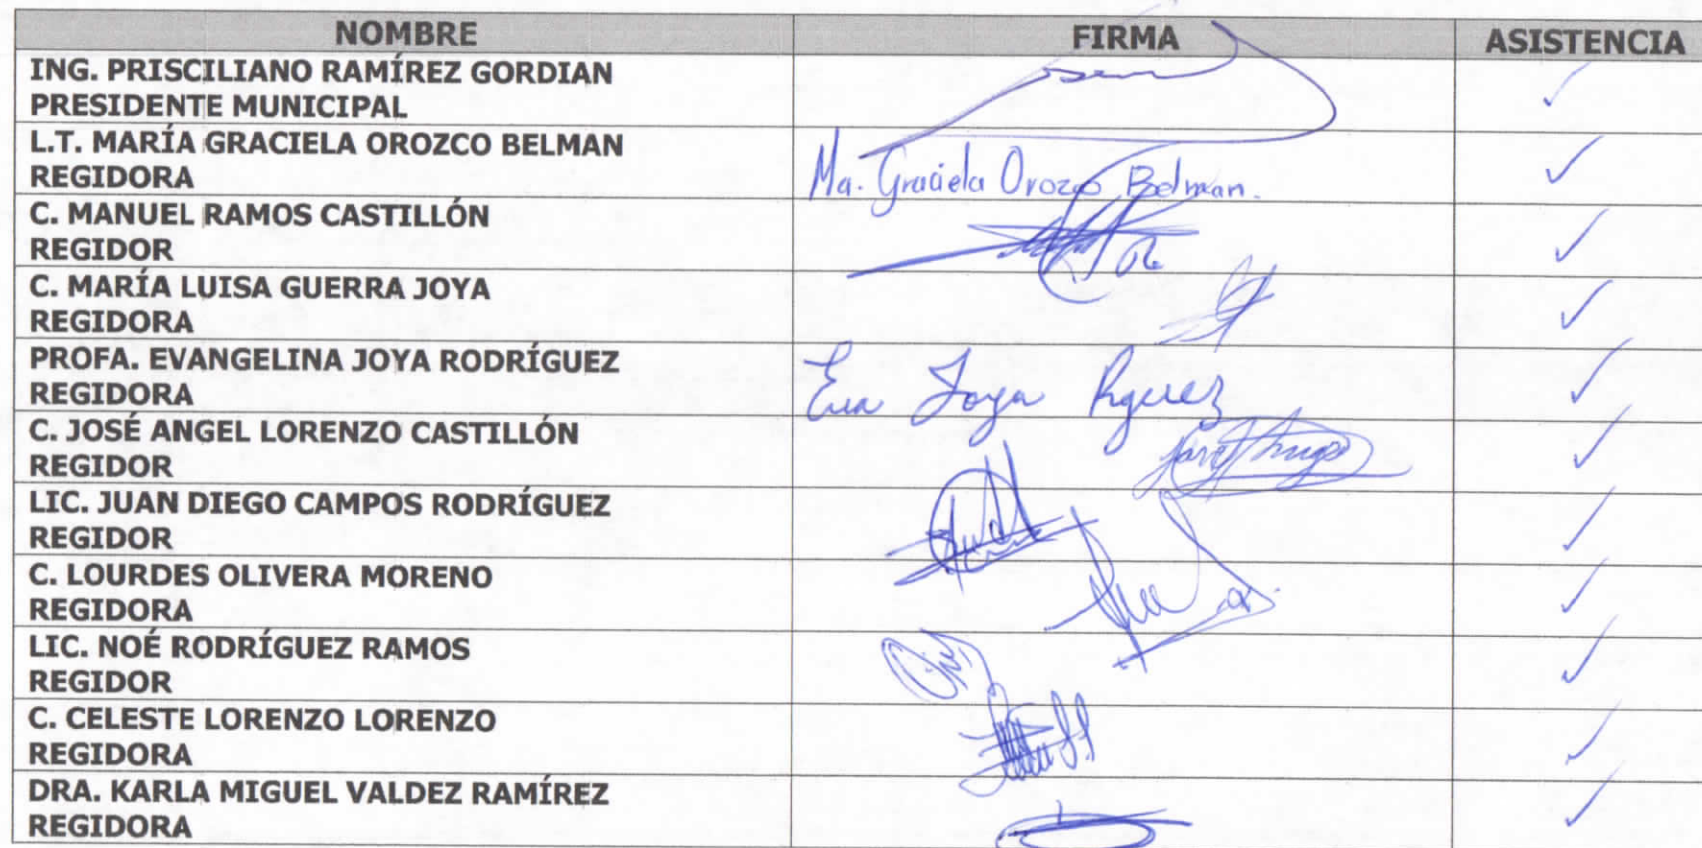 NOMBRE FIRMA ASISTENCIA
ING. PRISCILIANO RAMÍREZ GORDIAN
PRESIDENTE MUNICIPAL
L.T. MARÍA GRACIELA OROZCO BELMAN
REGIDORA
Ma. Graciela Orozco Belman.
C. MANUEL RAMOS CASTILLÓN
REGIDOR
C. MARÍA LUISA GUERRA JOYA
REGIDORA
PROFA. EVANGELINA JOYA RODRÍGUEZ
REGIDORA
Eva Joya Rguez
C. JOSÉ ANGEL LORENZO CASTILLÓN
REGIDOR
LIC. JUAN DIEGO CAMPOS RODRÍGUEZ
REGIDOR
C. LOURDES OLIVERA MORENO
REGIDORA
LIC. NOÉ RODRÍGUEZ RAMOS
REGIDOR
C. CELESTE LORENZO LORENZO
REGIDORA
DRA. KARLA MIGUEL VALDEZ RAMÍREZ
REGIDORA